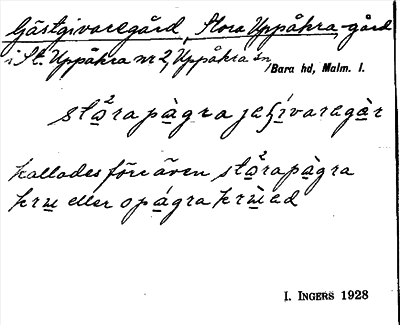 Gästgivaregård, Stora Uppåkra-gård
i St. Uppåkra nr 2, Uppåkra sn, Bara hd, Malm. l.
stɑ²rapàgra jeʃívaregàr
kallades förr även stɑ²rapàgra
kru eller opágra krùed
I. INGERS 1928